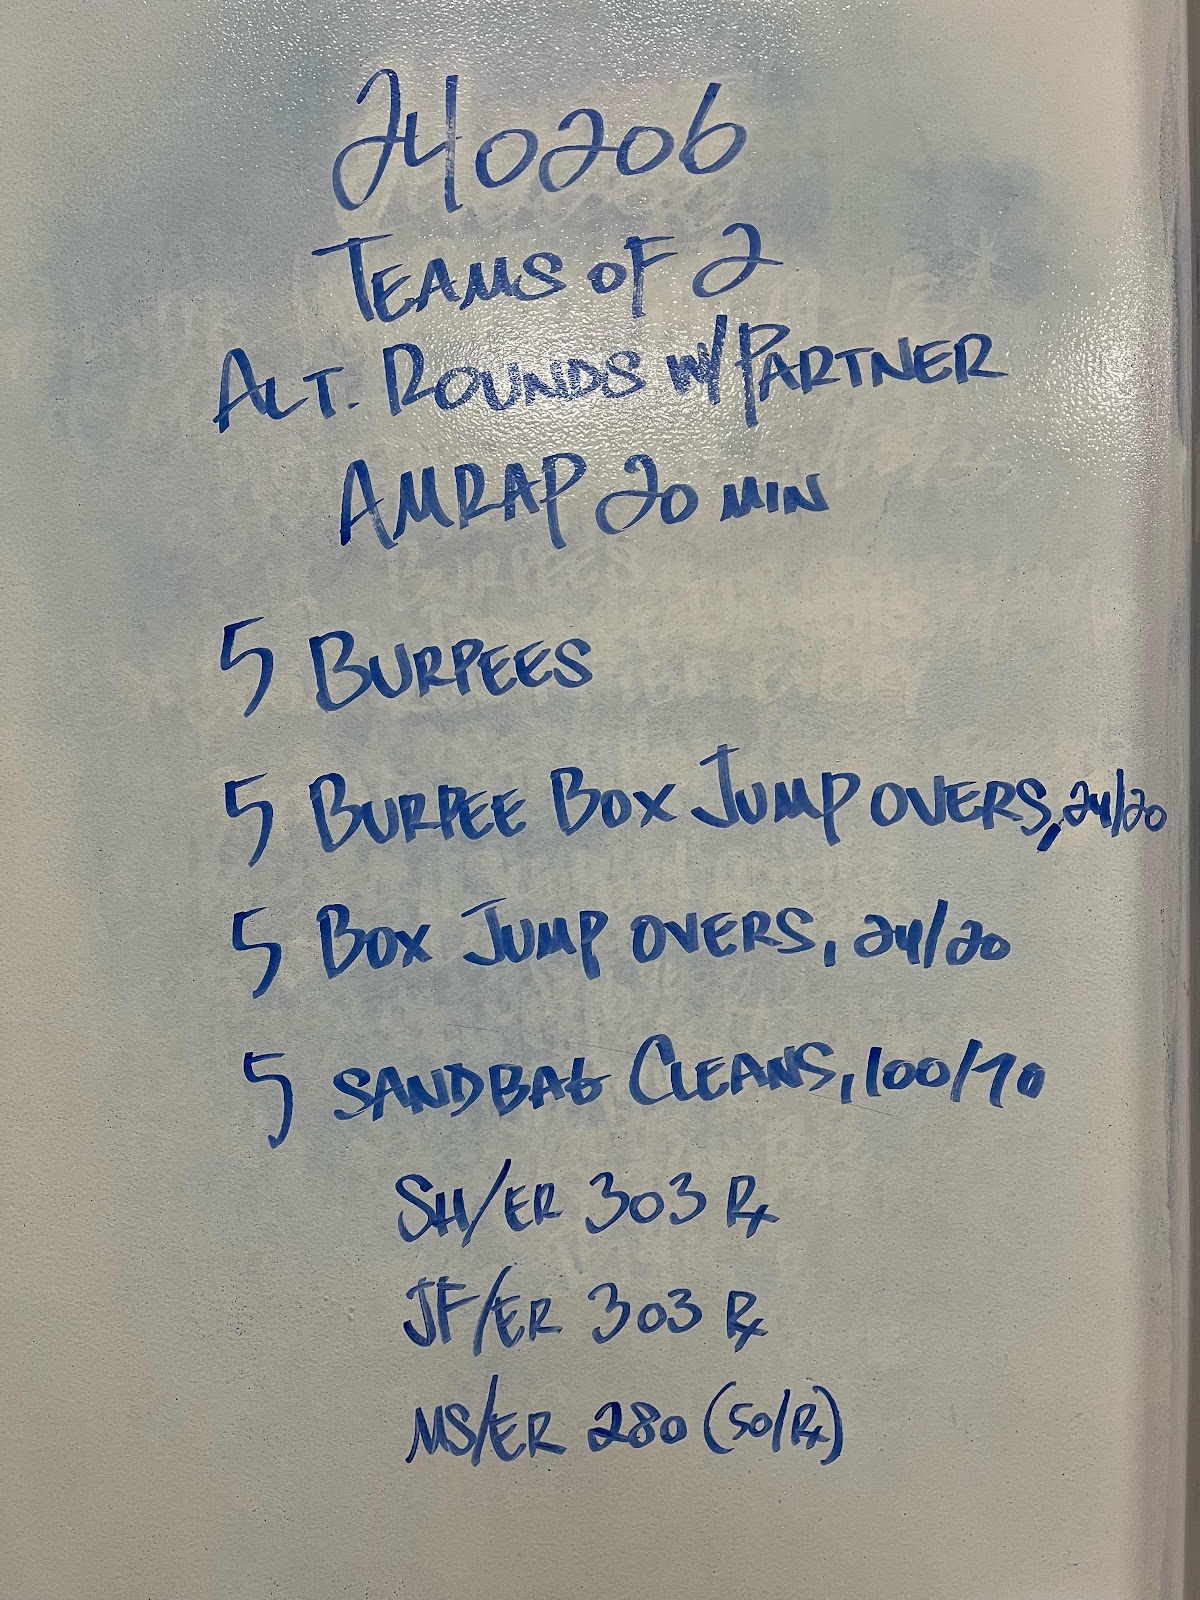 240206
TEAMS OF 2
ALT. ROUNDS W/ PARTNER
AMRAP 20 MIN
5 BURPEES
5 BURPEE BOX JUMP OVERS, 24/20
5 BOX JUMP OVERS, 24/20
5 SANDBAG CLEANS, 100/70
SH/ER 303 Rx
JF/ER 303 Rx
MS/ER 280 (50/Rx)